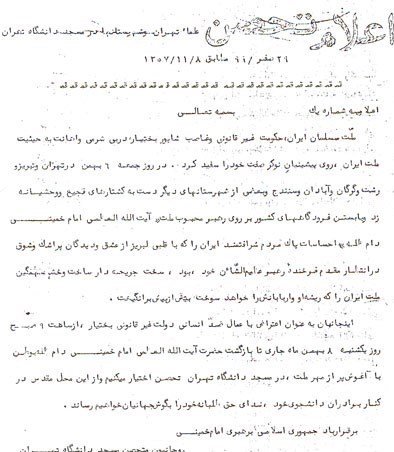 اعلام تحصن
علماء تهران وشهرستان‌ها در مسجد دانشگاه تهران
۲۹ صفر /۹۹ مطابق ۱۳۵۷/۱۱/۸
اعلامیه شماره یک بسمه تعالی
ملت مسلمان ایران، حکومت غیر قانونی وغاصب شاپور بختیار، دربی شرمی واهانت به حیثیت
ملت ایران ، روی پیشینیان نوکر صفت خود را سفید کرد . . در روز جمعه ۶ بهمن در تهران وتبریز و
رشت وگرگان وآبادان وسنندج وبعضی از شهرستانهای دیگر دست به کشتارهای فجیع ووحشیانه
زد وبابستن فرودگاههای کشور بر روی رهبر محبوب ملت، آیت الله العظمی امام خمینی
دام ظله، احساسات پاک مردم شرافتمند ایران را که با قلبی لبریز از عشق و دیدگان پراشک وشوق
درانتظار مقدم فرخنده رهبر عظیم‌الشأن خود ، بود ، سخت جریحه دار ساخت وخشم سهمگین
ملت ایران را که ریشه او واربابانش را خواهد سوخت بیش از پیش برانگیخت .
اینجانبان به عنوان اعتراض با عمال ضد انسانی دولت غیر قانونی بختیار ، از ساعت ۹ صبح
روز یکشنبه ۸ بهمن ماه جاری تا بازگشت حضرت آیت الله العظمی امام خمینی دام ظله
به آغوش پر از مهر ملت ، در مسجد دانشگاه تهران تحصن اختیار میکنیم واز این محل مقدس در
کنار برادران دانشجوی خود ، ندای حق طلبانه خود را بگوش جهانیان خواهیم رساند .
برقرار باد جمهوری اسلامی برهبری امام خمینی
روحانیون متحصن مسجد دانشگاه تهران